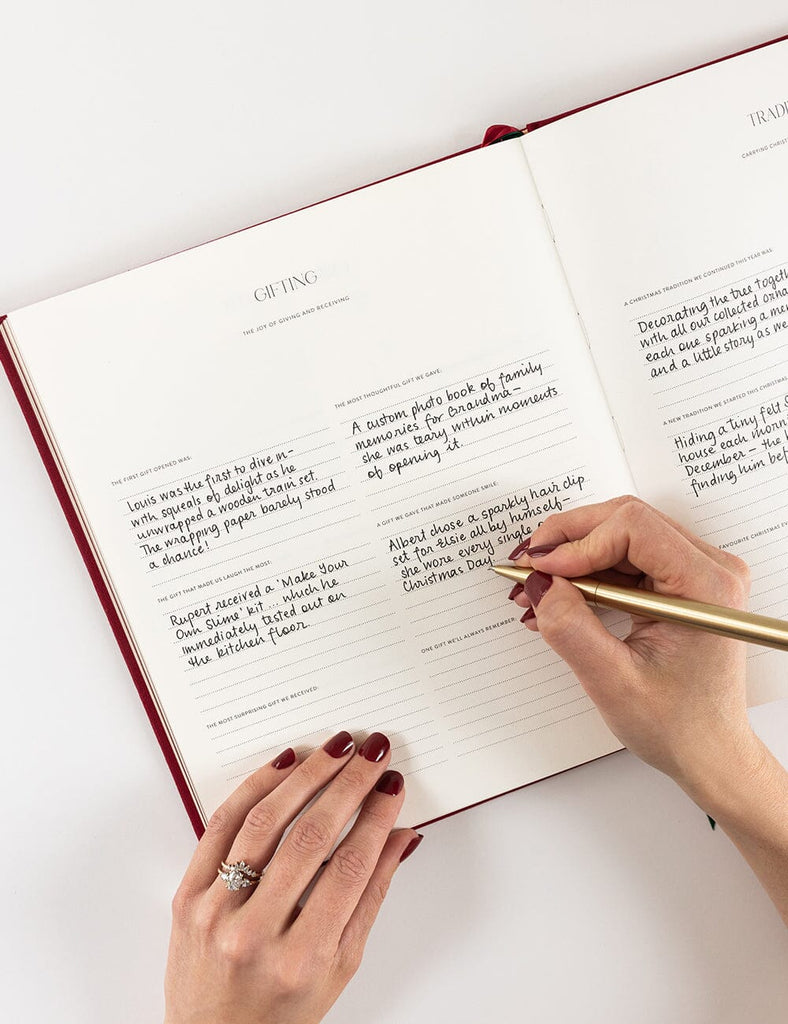 GIFTING
THE JOY OF GIVING AND RECEIVING
THE FIRST GIFT OPENED WAS:
Louis was the first to dive in-
with squeals of delight as he
unwrapped a wooden train set.
The wrapping paper barely stood
a chance!
THE GIFT THAT MADE US LAUGH THE MOST:
Rupert received a 'Make Your
Own Slime' kit ... which he
immediately tested out on
the kitchen floor.
THE MOST SURPRISING GIFT WE RECEIVED:
THE MOST THOUGHTFUL GIFT WE GAVE:
A custom photo book of family
memories for Grandma –
she was teary within moments
of opening it.
A GIFT WE GAVE THAT MADE SOMEONE SMILE:
Albert chose a sparkly hair clip
set for Elsie all by himself –
she wore every single
Christmas Day
ONE GIFT WE'LL ALWAYS REMEMBER:
CARRYING
A CHRISTMAS TRADITION WE CONTINUED THIS YEAR WAS:
Decorating the tree
with all our collected
each one sparking a
and a little story as
A NEW TRADITION WE STARTED THIS CHRISTMAS
Hiding a tiny felt
house each
December – the
finding him
FAVOURITE CHRISTMAS